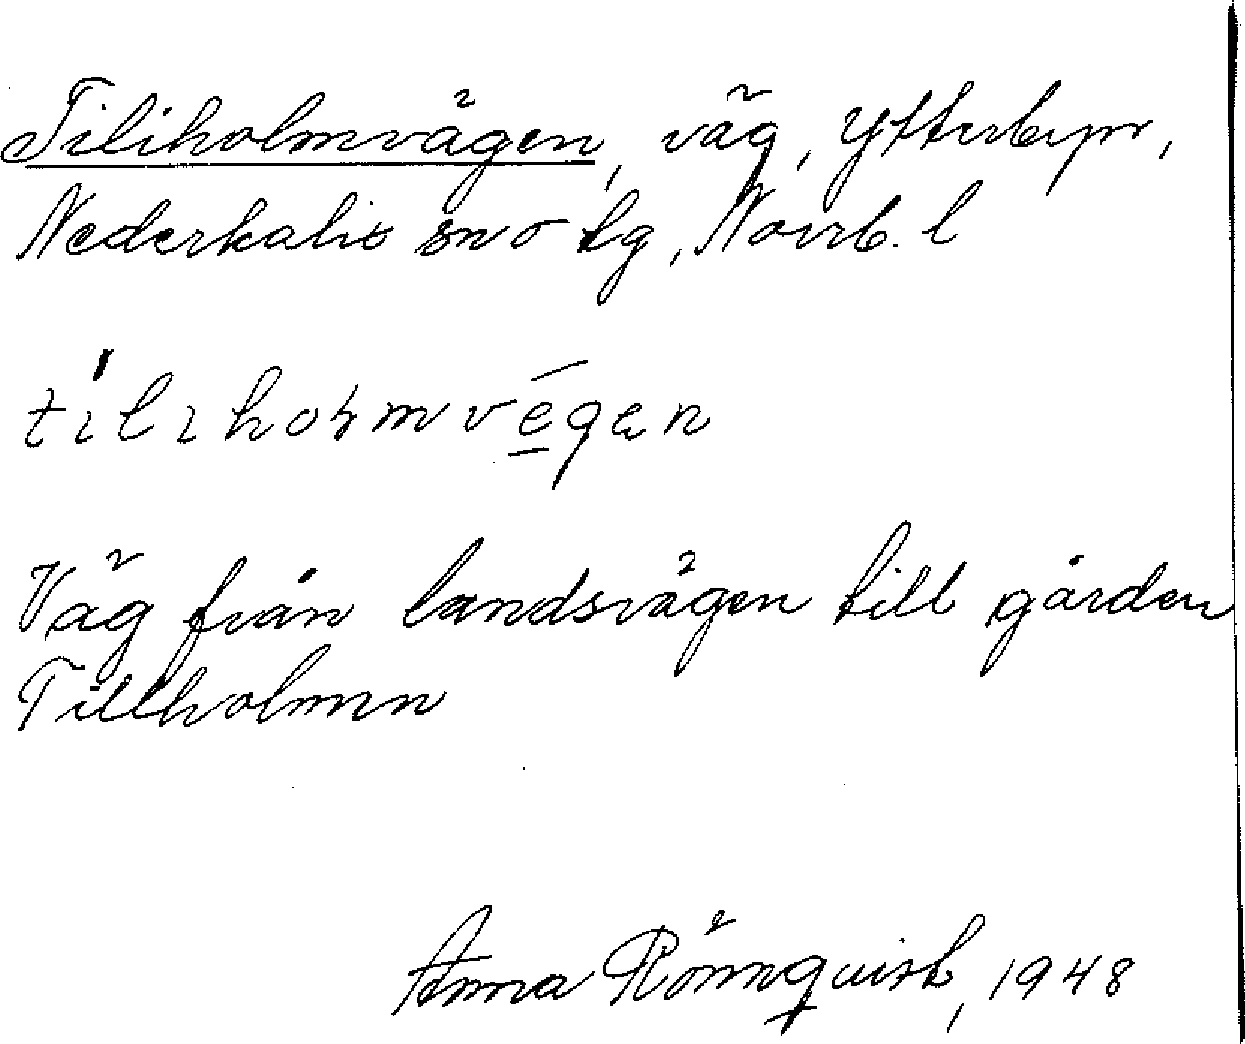 Tiliholmvägen, väg, Ytterbyn,
Nederkalix sn o tg, Norrb. l
tiliholmvégen
Väg från landsvägen till gården
Tillholmen
Anna Rönnqvist, 1948